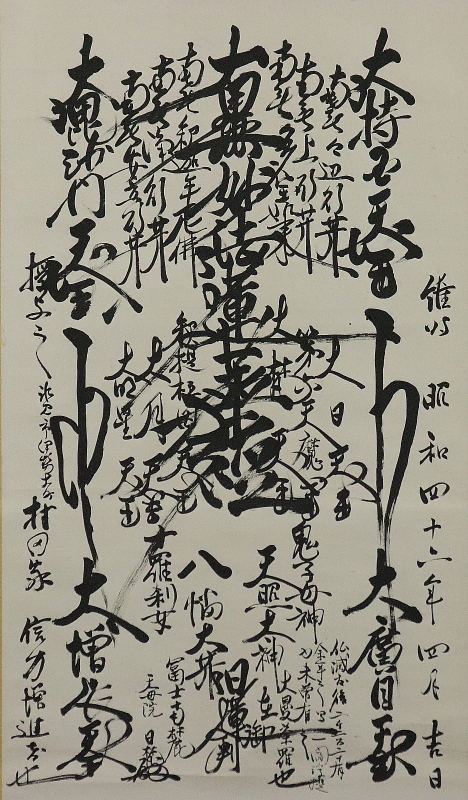 大持国天王
南無無辺行菩薩
南無上行菩薩
南無多宝如来
南無妙法蓮華経
南無釈迦牟尼佛
南無浄行菩薩
南無安立行菩薩
大毘沙門天王
維時 昭和四十六年四月吉日
大日天王
第六天魔王
大梵天王
釈提桓因
大月天王
大明星天王
鬼子母神
十羅刹女
天照大神
八幡大菩薩
大廣目天王
大増長天王
仏滅度後二千二百二十有
余年之間
一閻浮提
之内未曾有之
大曼荼羅也
日蓮
在御判
富士南麓
日
授与之
村田家
信力増進